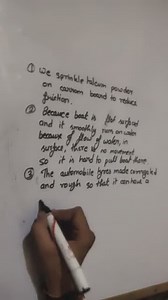 ① We sprinkle talcum powder
on carrom board to reduce
friction.
② Because boat is flat surfaced
and it smoothly runs on water
because of flow of water, in
surface, there is no movement
so it is hard to pull boat there
③ The automobile tyres made corrugated
and rough so that it can have a